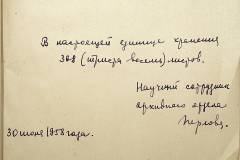 В настоящей единице хранения
308 (триста восемь) листов.
Научный сотрудник
архивного отдела
30 июня 1958 года.